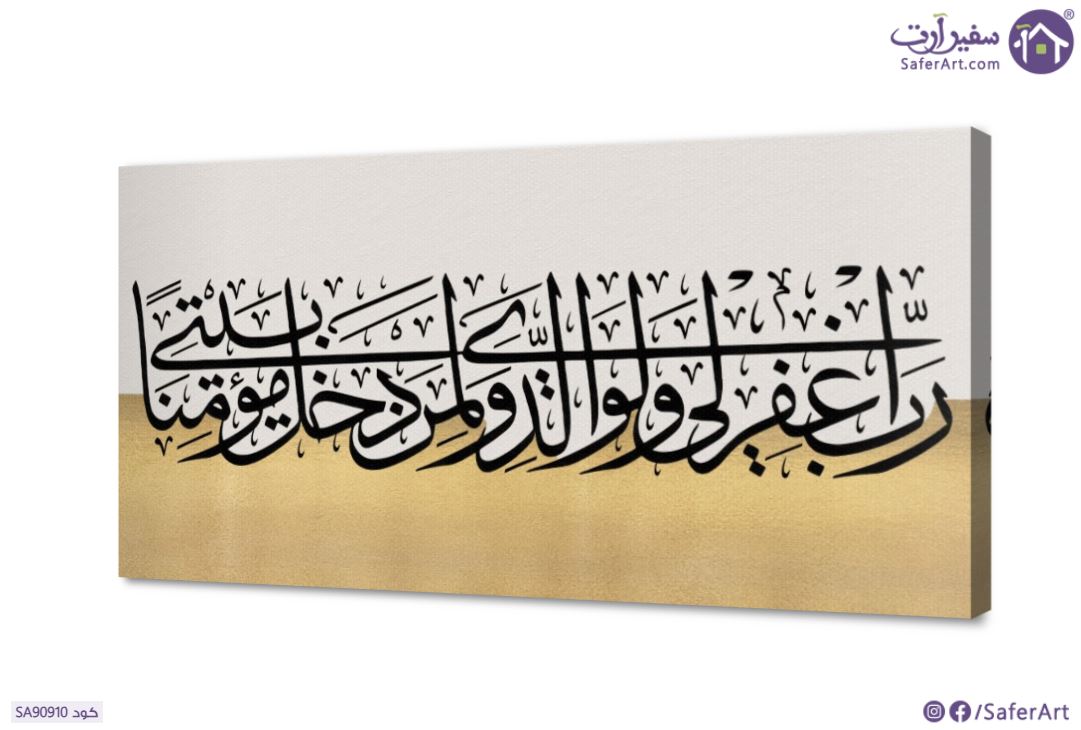 سفير آرت
®
SaferArt.com
رَبِّ اغْفِرْ لِي وَلِوَالِدَيَّ وَلِمَن دَخَلَ بَيْتِيَ مُؤْمِنًا
كود SA90910
/SaferArt